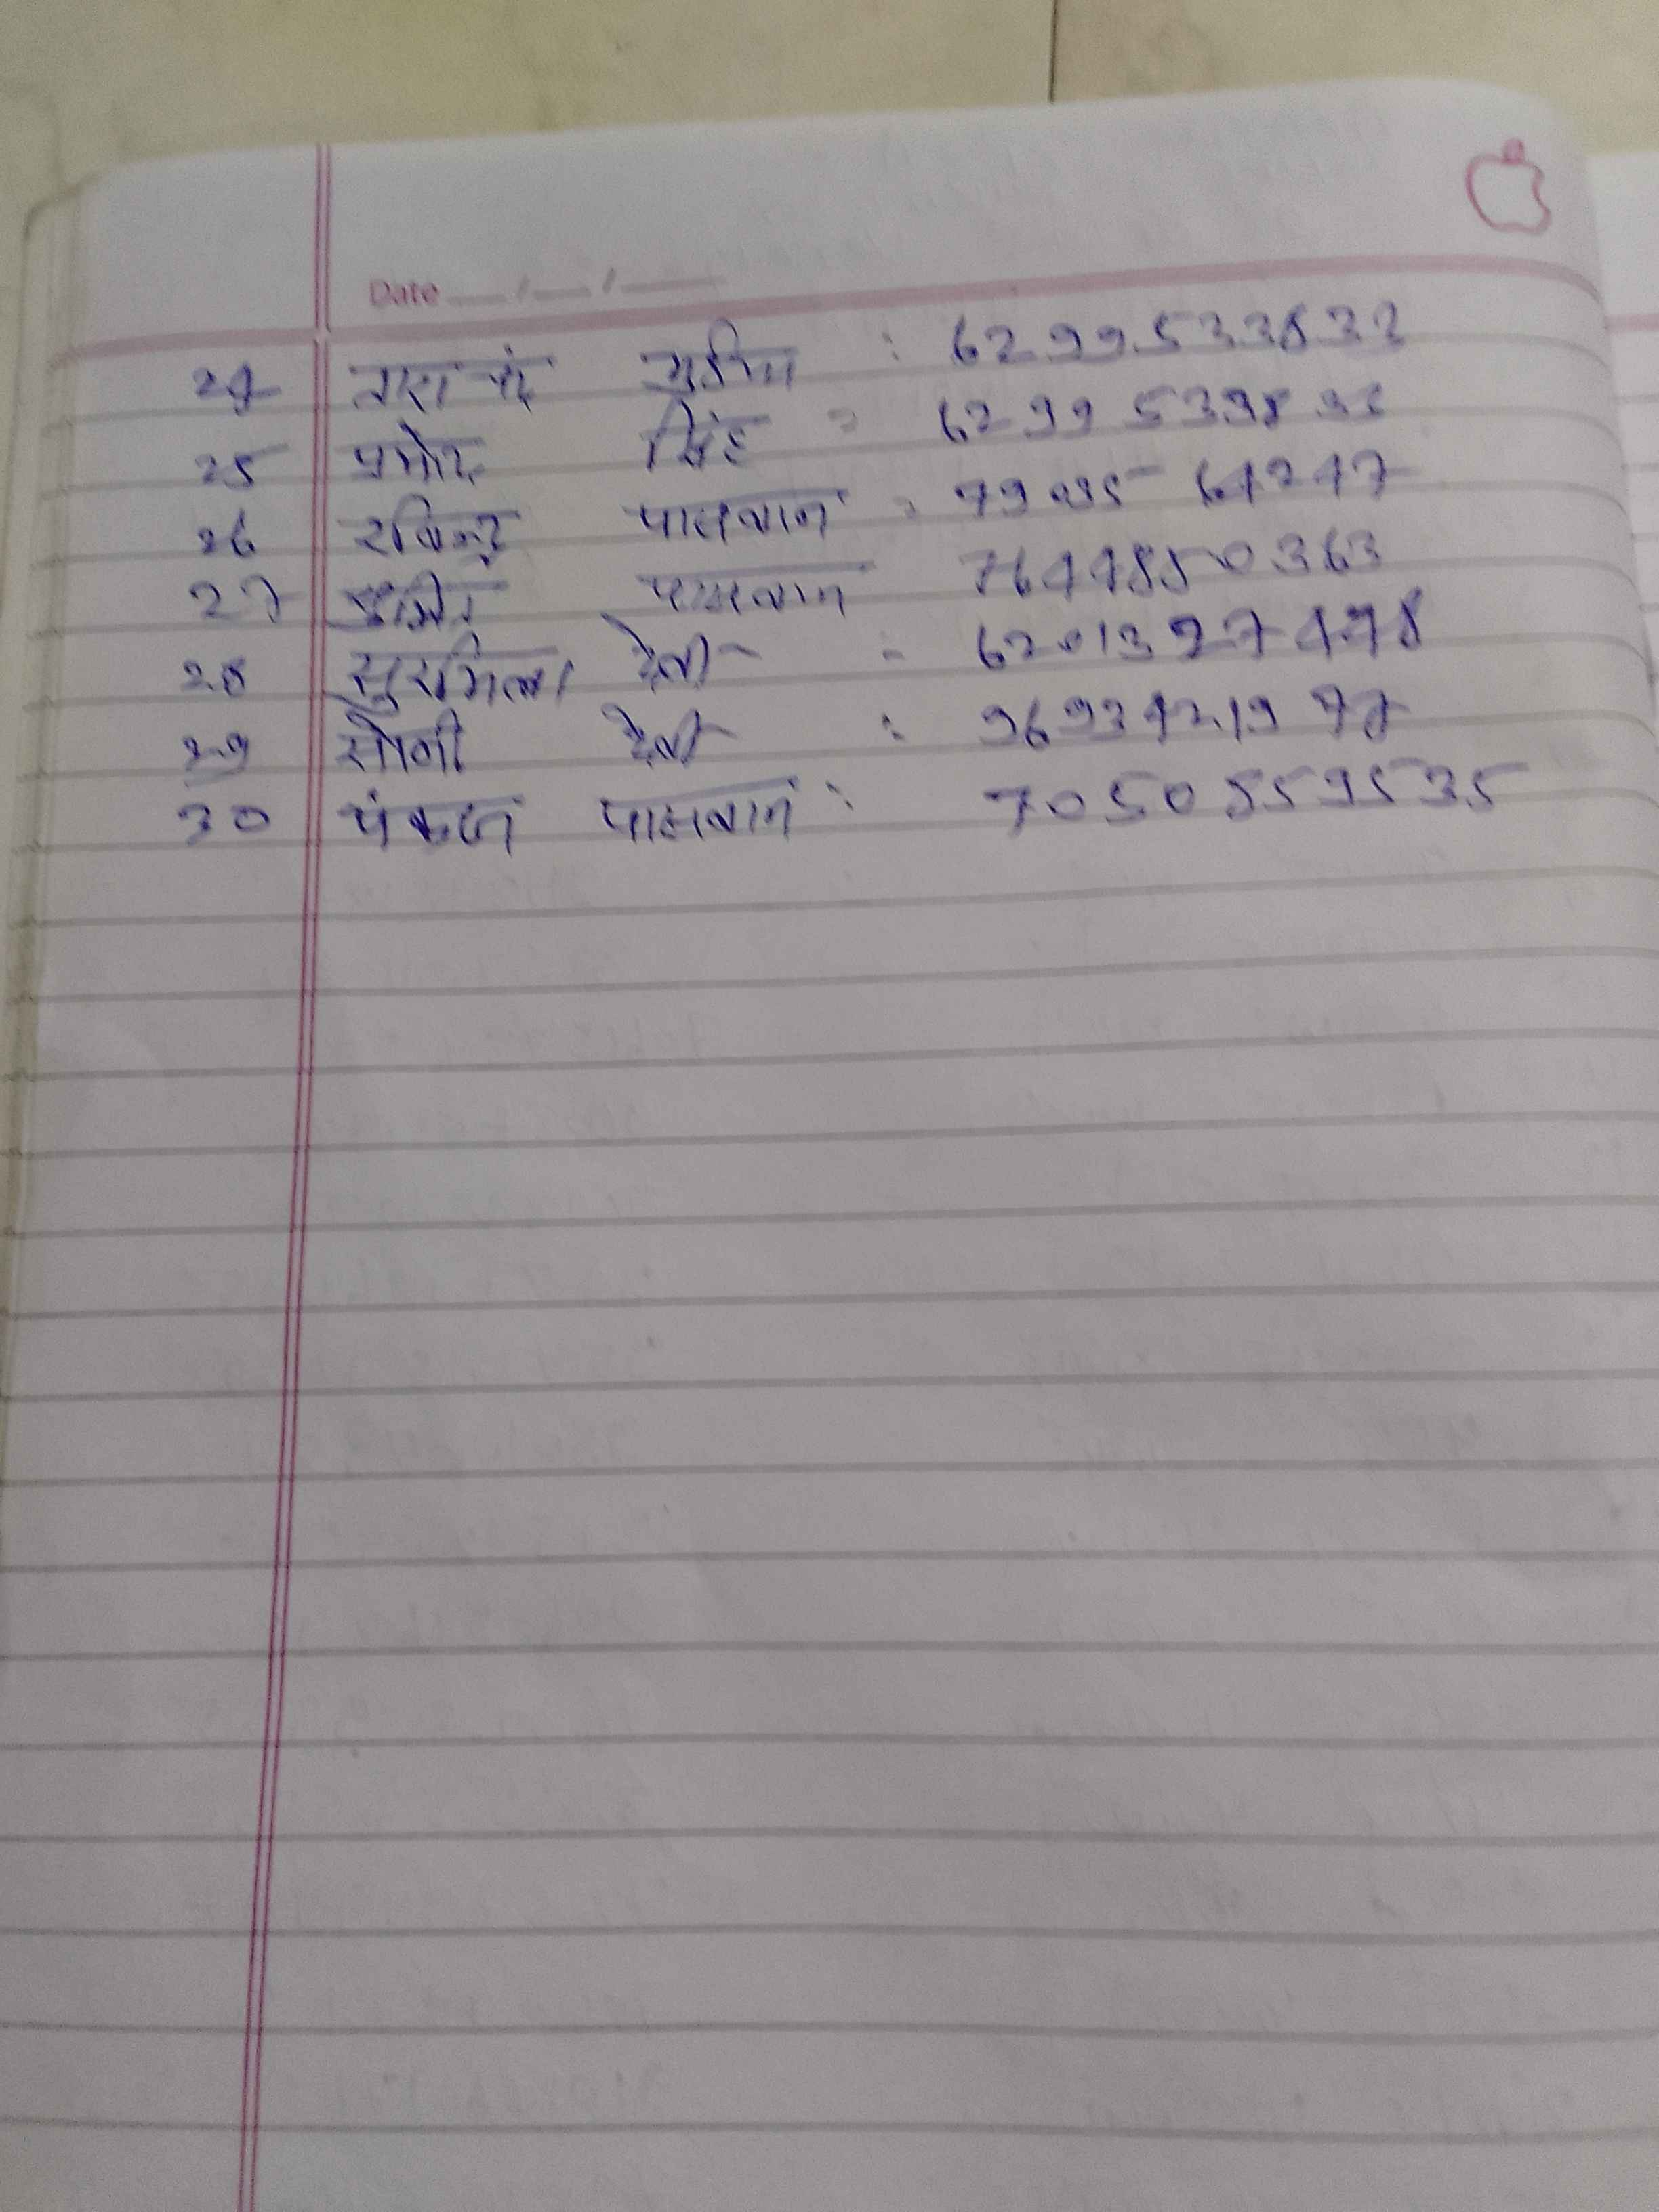 Date __/__/__
24 तारा चंद मुखिया : 6299533832
25 प्रमोद सिंह = 62995398
26 रविन्द्र पासवान = 64247
27 पासवान 7644850363
28 सुरमिला देवी = 6201327478
29 सोनी देवी : 9693421977
30 पंकज पासवान : 70508559535